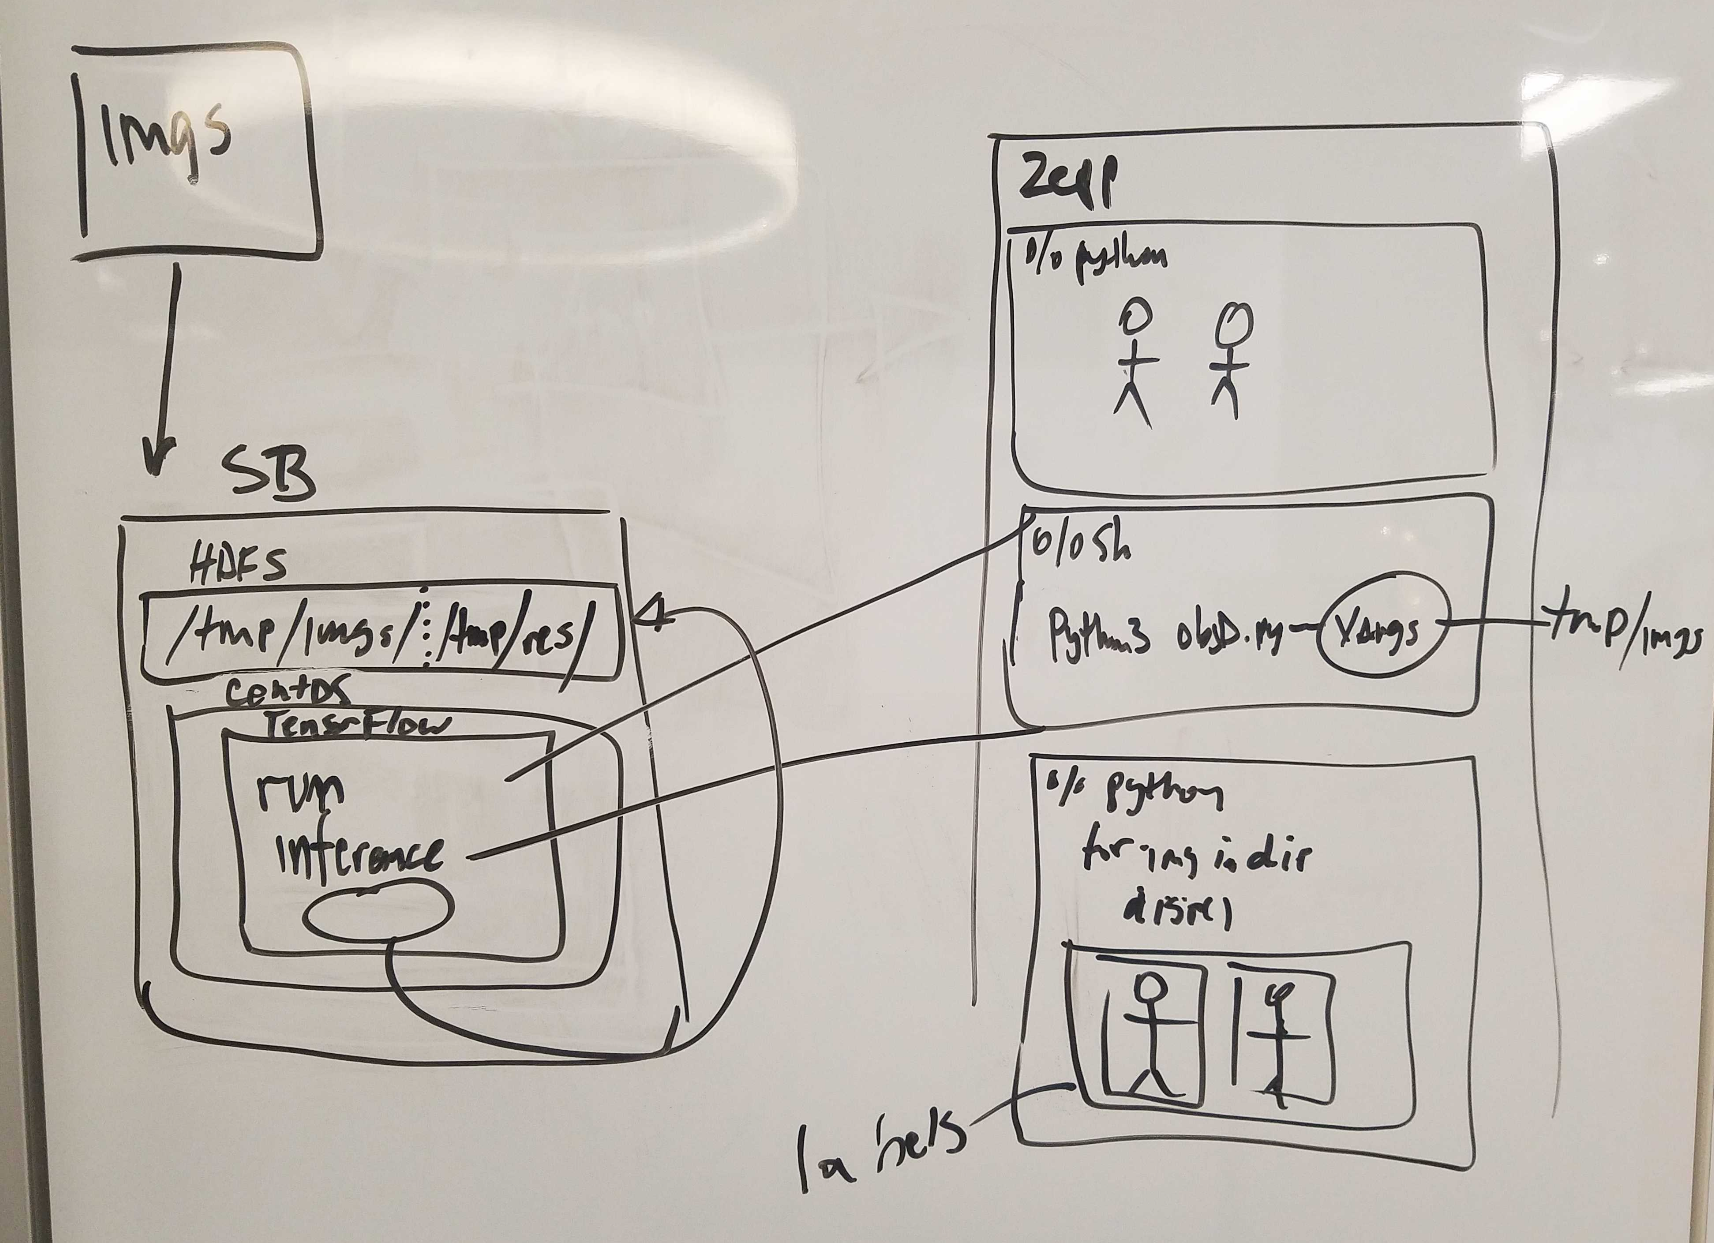 imgs
SB
HDFS
/tmp/imgs/ /tmp/res/
CentOS
TensorFlow
run
inference
Zepp
% python
% sh
Python3 obsD.py - Xargs
tmp/imgs
% python
for img in dir
labels